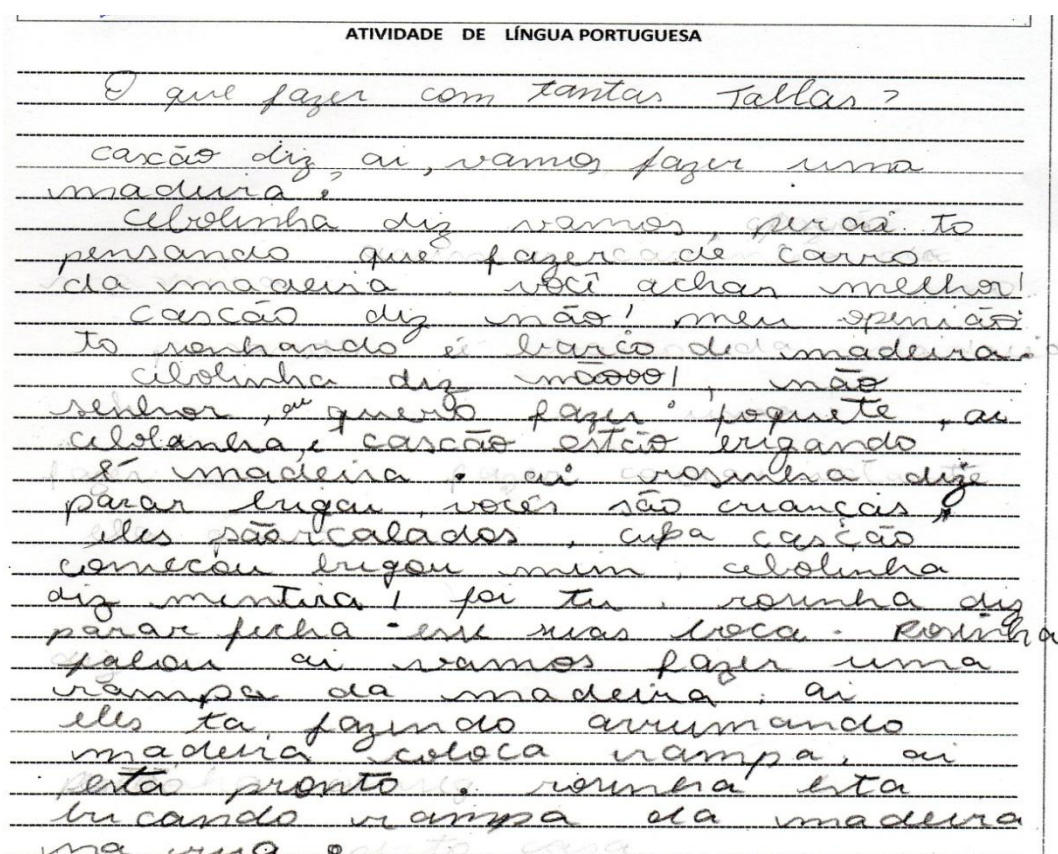 ATIVIDADE DE LÍNGUA PORTUGUESA
O que fazer com tantas Tallas?
cascão diz, ai, vamos fazer uma
madeira.
cebolinha diz vamos, perai to
pensando que fazer de carro
da madeira você achas melhor!
Cascão diz não! meu openião
to sonhando é barco de madeira.
cibolinha diz nãoooo!, não
senhor, eu quero fazer foguete, ai
cebolanha, e cascão estão brigando
madeira. ai rosinha dize
parar brigar, vocês são crianças,
eles são calados, cupa cascão
começou brigou mim, cebolinha
diz mentira! foi tu. rosinha diz
parar fecha esse suas boca. Rosinha
falou ai vamos fazer uma
rampa da madeira. ai
eles ta fazendo arrumando
madeira coloca rampa, ai
está pronto. rosinha esta
bricando rampa da madeira
na rua.